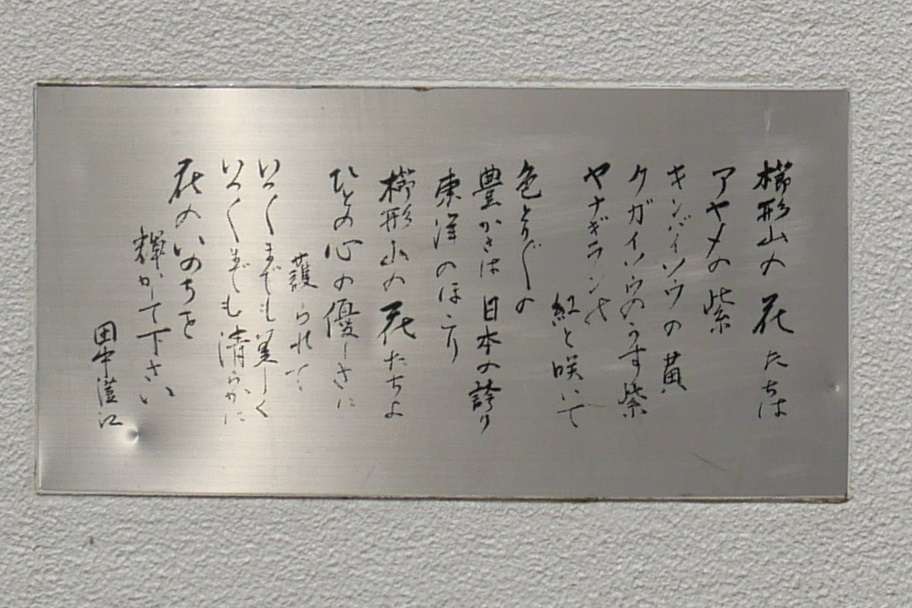 櫛形山の花たちは
アヤメの紫
キンバイソウの黄
クガイソウのうす紫
ヤナギランは
紅と咲いて
色とりどりの
豊かさは日本の誇り
東洋のほこり
櫛形山の花たちよ
ひとの心の優しさに
護られて
いつまでも美しく
いつまでも清らかに
花のいのちを
輝かして下さい
田中澄江